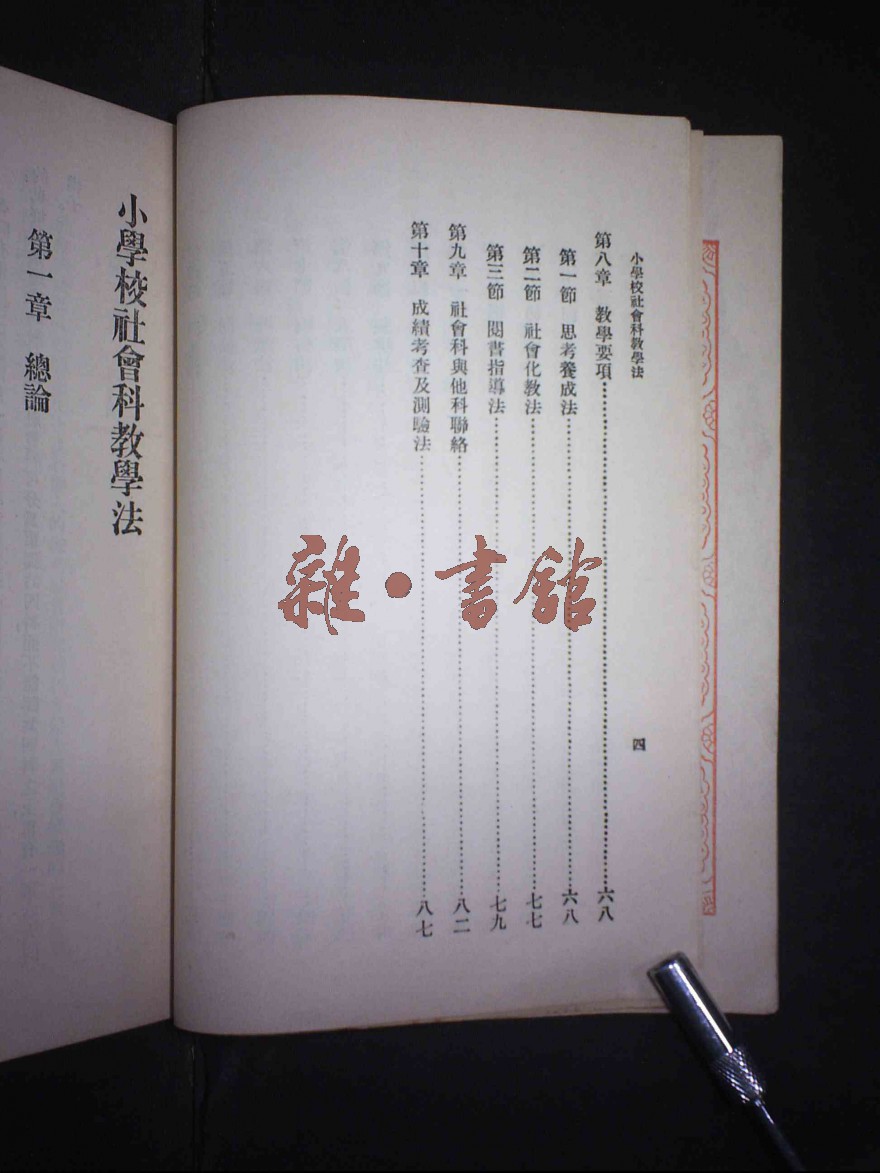 小學校社會科教學法
四
第八章 教學要項……六八
第一節 思考養成法……六八
第二節 社會化教法……七七
第三節 閱書指導法……七九
第九章 社會科與他科聯絡……八二
第十章 成績考查及測驗法……八七
小學校社會科教學法
第一章 總論
雜·書館